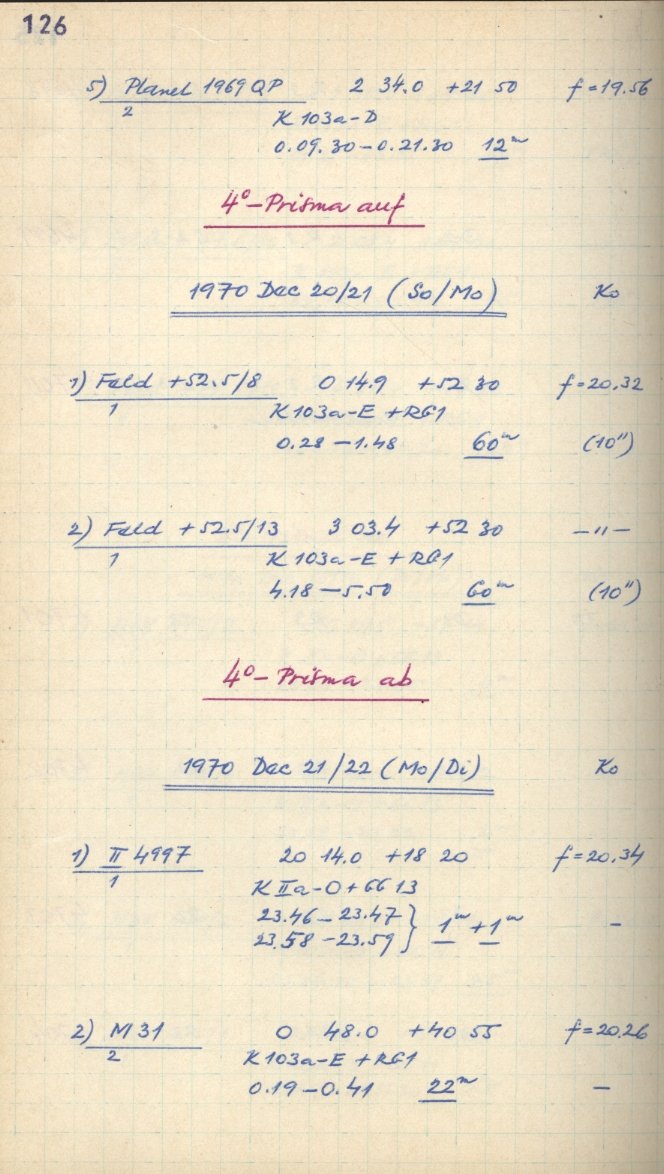 126
5) Planet 1969 QP 2 34.0 +21 50 f=19.56
2 K 103a-D
0.09.30-0.21.30 12m
4°-Prisma auf
1970 Dec 20/21 (So/Mo) Ko
1) Feld +52.5/8 0 14.9 +52 30 f=20.32
1 K 103a-E + RG1
0.28-1.48 60m (10")
2) Feld +52.5/13 3 03.4 +52 30 -"-
1 K 103a-E + RG1
4.18-5.50 60m (10")
4°-Prisma ab
1970 Dec 21/22 (Mo/Di) Ko
1) II 4997 20 14.0 +18 20 f=20.34
1 K IIa-O + GG 13
23.46-23.47 } 1m + 1m -
23.58-23.59
2) M 31 0 48.0 +40 55 f=20.26
2 K 103a-E + RG1
0.19-0.41 22m -